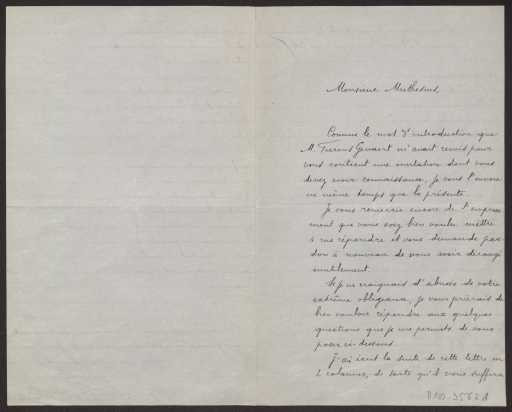 Monsieur Muthesius,
Comme le mot d'introduction que
M. Fierens Gevaert m'avait remis pour
vous contient une invitation dont vous
devez avoir connaissance, je vous l'envoie
en même temps que la présente.
Je vous remercie encore de l'empresse
ment que vous avez bien voulu mettre
à me répondre et vous demande par
don à nouveau de vous avoir dérangé
inutilement.
Si je ne craignais d'abuser de votre
extrême obligeance, je vous prierais de
bien vouloir répondre aux quelques
questions que je me permets de vous
poser ci-dessous.
J'ai écrit la suite de cette lettre en
2 colonnes, de sorte qu'il vous suffira